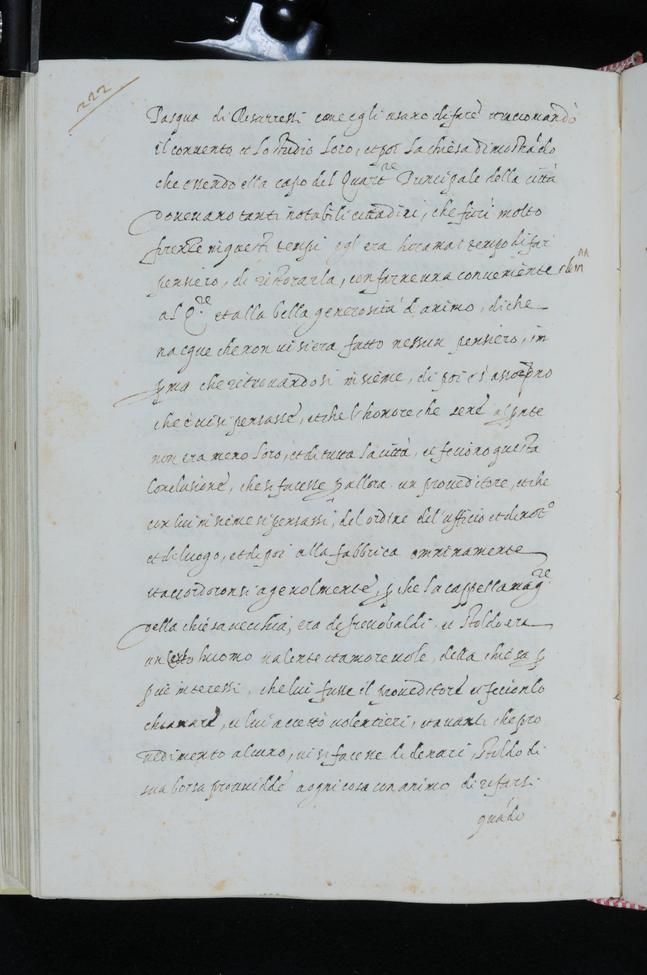 222
Pasqua di Resurressi come egli usano di fare et racionando
il convento et lo studio loro, et poi la chiesa dimostrado
che essendo ella capo del Quart.re Principale della città
Donevano tanti notabili cittadini, che furi molto
in questi tempi egli era horamai tempo di far
pensiero, di ristorarla, con farne una conveniente
al Q.re et alla bella generosità d'animo, di che
nacque che non vi si era fatto nessun pensiero, in
p ma che ritrovandosi insieme, di poi
che è vi si pensasse, et che l'honore che
non era meno loro, et di tutta la città, et feciono questa
Conclusione, che si facesse p allora un proveditore, et che
con lui insieme si pensassi, del ordine del ufficio et de
et di luogo, et di poi alla fabbrica omninamente
et accordoronsi agevolmente, p che la cappella mag.re
della chiesa vecchia, era de frescobaldi et Stoldo era
un huomo valente et amorevole, della chiesa p
interessi, che lui fusse il proveditore et fecionlo
chiamare, et lui accettò volentieri, et avanti che pro
vedimento alcuno, vi si facesse di denari, Stoldo di
sua borsa providde a ogni cosa con animo di rifarsi
quado